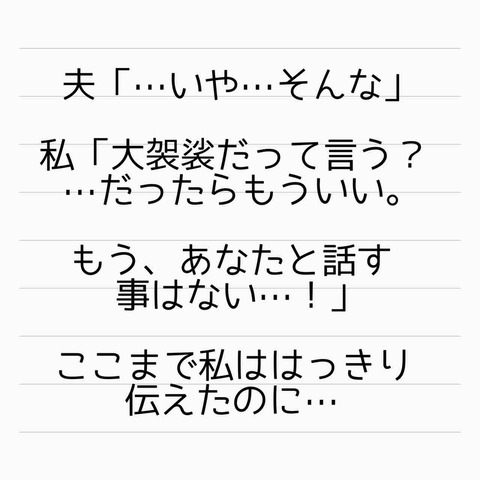 夫「…いや…そんな」
私「大袈裟だって言う？
…だったらもういい。
もう、あなたと話す
事はない…！」
ここまで私ははっきり
伝えたのに…